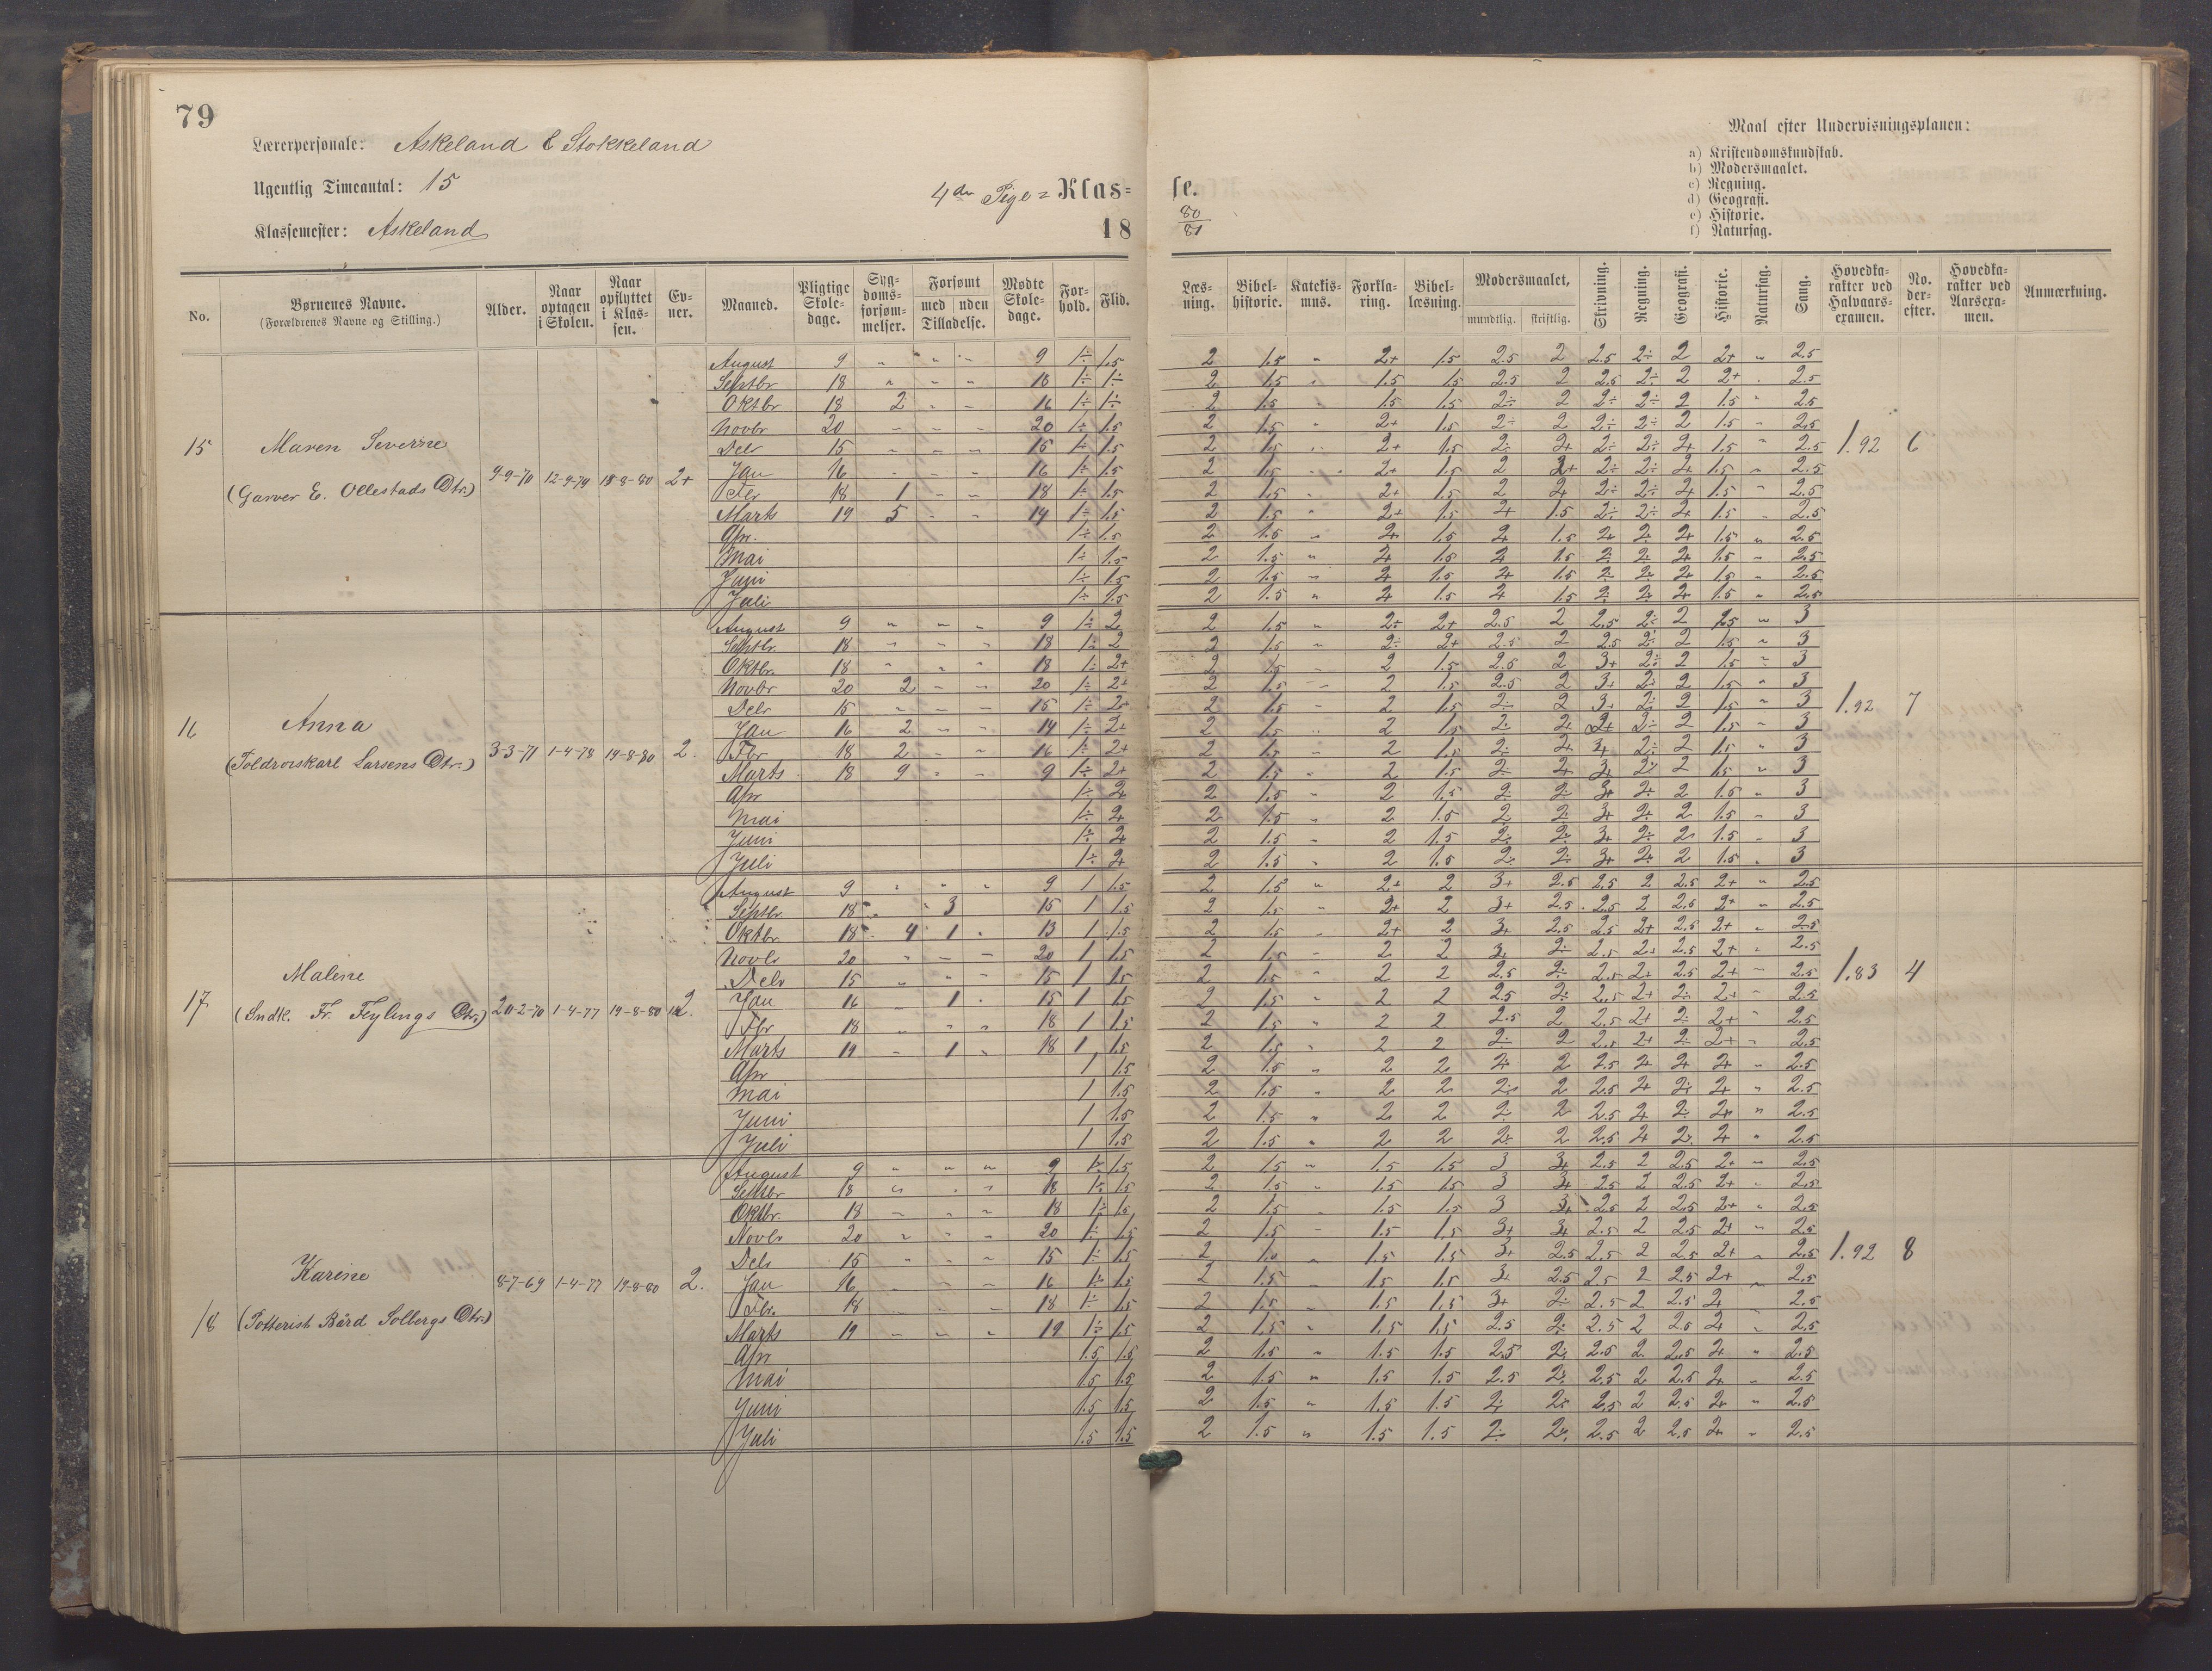 79
Lærerpersonale: Askeland & Stokkeland
Ugentlig Timeantal: 15
4de Pige= Klas=se.
Klassemester: Askeland
18 80/81
Maal efter Undervisningsplanen:
a) Kristendomskundskab.
b) Modersmaalet.
c) Regning.
d) Geografi.
e) Historie.
f) Naturfag.
No. | Børnenes Navne. (Forældrenes Navne og Stilling.) | Alder. | Naar optagen i Skolen. | Naar opflyttet i Klassen. | Evner. | Maaned. | Pligtige Skoledage. | Sygdomsforsømmelser. | Forsømt med Tilladelse. | Forsømt uden Tilladelse. | Mødte Skoledage. | Forhold. | Flid. | Læsning. | Bibelhistorie. | Katekismus. | Forklaring. | Bibellæsning. | Modersmaalet, mundtlig. | skriftlig. | Skrivning. | Regning. | Geografi. | Historie. | Naturfag. | Sang. | Hovedkarakter ved Halvaarsexamen. | No. derefter. | Hovedkarakter ved Aarsexamen. | Anmærkning.
15 Maren Severine
(Garver E. Ollestads Dtr.) 9-9-70 12-9-79 18-8-80 2+
1.92 6
August 9 " " " 9 1÷ 1.5 2 1.5 " 2+ 1.5 2.5 2 2.5 2÷ 2 2+ " 2.5
Septbr 18 " " " 18 1÷ 1÷ 2 1.5 " 1.5 1.5 2.5 2 2.5 2÷ 2 2+ " 2.5
Oktbr 18 2 " " 16 1÷ 1÷ 2 1.5 " 1.5 1.5 2÷ 2 2÷ 2÷ 2 1.5 " 2.5
Novbr 20 " " " 20 1÷ 1.5 2 1.5 " 2+ 1.5 2÷ 2 2÷ 2÷ 2 1.5 " 2.5
Debr 15 " " " 15 1÷ 1.5 2 1.5 " 2+ 1.5 2÷ 2+ 2÷ 2÷ 2+ 1.5 " 2.5
Jan 16 " " " 16 1÷ 1.5 2 1.5 " 2+ 1.5 2 2+ 2÷ 2÷ 2+ 1.5 " 2.5
Fbr 18 1 " " 18 1÷ 1.5 2 1.5 " 2+ 1.5 2 2+ 2÷ 2÷ 2+ 1.5 " 2.5
Marts 19 5 " " 14 1÷ 1.5 2 1.5 " 2+ 1.5 2+ 1.5 2÷ 2÷ 2+ 1.5 " 2.5
Apr. 1÷ 1.5 2 1.5 " 2+ 1.5 2+ 1.5 2+ 2÷ 2+ 1.5 " 2.5
Mai 1÷ 1.5 2 1.5 " 2+ 1.5 2+ 1.5 2÷ 2÷ 2+ 1.5 " 2.5
Juni 1÷ 1.5 2 1.5 " 2+ 1.5 2+ 1.5 2÷ 2÷ 2+ 1.5 " 2.5
Juli 1÷ 1.5 2 1.5 " 2+ 1.5 2+ 1.5 2÷ 2÷ 2+ 1.5 " 2.5
16 Anna
Larsens Dtr.) 3-3-71 1-4-78 19-8-80 2.
1.92 7
August 9 " " " 9 1÷ 2 2 1.5 " 2÷ 2+ 2.5 2 2.5 2÷ 2 1.5 " 3
Septbr. 18 " " " 18 1÷ 2 2 1.5 " 2÷ 2+ 2.5 2 2.5 2÷ 2 1.5 " 3
Oktbr. 18 " " " 18 1÷ 2+ 2 1.5 " 2 1.5 2.5 2 3+ 2÷ 2 1.5 " 3
Novbr 20 2 " " 20 1÷ 2+ 2 1.5 " 2 1.5 2.5 2 3+ 2÷ 2 1.5 " 3
Debr 15 " " " 15 1÷ 2+ 2 1.5 " 2 1.5 2÷ 2 3+ 2÷ 2 1.5 " 3
Jan 16 2 " " 14 1÷ 2+ 2 1.5 " 2 1.5 2÷ 2+ 2+ 2÷ 2 1.5 " 3
Fbr 18 2 " " 16 1÷ 2+ 2 1.5 " 2 1.5 2÷ 2+ 3+ 2÷ 2 1.5 " 3
Marts 18 9 " " 9 1÷ 2+ 2 1.5 " 2 1.5 2÷ 2+ 3+ 2÷ 2 1.5 " 3
Apr 1÷ 2+ 2 1.5 " 2 1.5 2÷ 2÷ 3+ 2÷ 2 1.5 " 3
Mai 1÷ 2+ 2 1.5 " 2 1.5 2÷ 2÷ 3+ 2÷ 2 1.5 " 3
Juni 1÷ 2+ 2 1.5 " 2 1.5 2÷ 2÷ 3+ 2÷ 2 1.5 " 3
Juli 1÷ 2+ 2 1.5 " 2 1.5 2÷ 2÷ 3+ 2÷ 2 1.5 " 3
17 Malene
(Sndk. Fr. Feylings Dtr.) 20-2-70 1-4-77 19-8-80 2.
1.83 4
August 9 " " " 9 1 1.5 2 1.5 " 2+ 2 3+ 2.5 2.5 2 2.5 2+ " 2.5
Septbr. 18 " 3 15 1 1.5 2 1.5 " 2+ 2 3+ 2.5 2.5 2 2.5 2+ " 2.5
Oktbr 18 4 1 " 13 1 1.5 2 1.5 " 2+ 2 3+ 2.5 2.5 2+ 2.5 2+ " 2.5
Novbr 20 " " " 20 1 1.5 2 1.5 " 2 2 3+ 2÷ 2.5 2+ 2.5 2+ " 2.5
Debr 15 " " " 15 1 1.5 2 1.5 " 2 2 2.5 2÷ 2.5 2+ 2.5 2+ " 2.5
Jan 16 " 1 " 15 1 1.5 2 1.5 " 2 2 2.5 2÷ 2.5 2+ 2÷ 2+ " 2.5
Fbr 18 " " " 18 1 1.5 2 1.5 " 2 2 2.5 2 2.5 2+ 2÷ 2+ " 2.5
Marts 19 " 1 " 18 1 1.5 2 1.5 " 2 2 2÷ 2 2.5 2+ 2÷ 2+ " 2.5
Apr 1 1.5 2 1.5 " 2 2 2÷ 2 2.5 2+ 2+ 2+ " 2.5
Mai 1 1.5 2 1.5 " 2 2 2÷ 2 2.5 2+ 2÷ 2+ " 2.5
Juni 1 1.5 2 1.5 " 2 2 2÷ 2 2.5 2+ 2÷ 2+ " 2.5
Juli 1 1.5 2 1.5 " 2 2 2÷ 2 2.5 2+ 2÷ 2+ " 2.5
18 Karine
(Potterist Bård Solbergs Dtr.) 8-7-69 1-4-77 19-8-80 2.
1.92 8
August 9 " " " 9 1÷ 1.5 2 1.5 " 1.5 1.5 3 3+ 2.5 2 2.5 2+ " 2.5
Septbr 18 " " " 18 1÷ 1.5 2 1.5 " 1.5 1.5 3 3+ 2.5 2 2.5 2+ " 2.5
Oktbr. 18 " " " 18 1÷ 1.5 2 1.5 " 1.5 1.5 3 3+ 2.5 2 2.5 2+ " 2.5
Novbr 20 " " " 20 1÷ 1.5 2 1.5 " 1.5 1.5 3+ 3+ 2.5 2 2.5 2+ " 2.5
Debr 15 " " " 15 1÷ 1.5 2 1.5 " 1.5 1.5 3+ 2.5 2.5 2 2.5 2+ " 2.5
Jan 16 " " " 16 1÷ 1.5 2 1.5 " 1.5 1.5 3+ 2.5 2.5 2 2.5 2+ " 2.5
Fbr. 18 " " " 18 1÷ 1.5 2 1.5 " 1.5 1.5 3+ 2÷ 2.5 2 2.5 2+ " 2.5
Marts 19 " " " 19 1÷ 1.5 2 1.5 " 1.5 1.5 2.5 2÷ 2.5 2 2.5 2+ " 2.5
Apr 1.5 1.5 2 1.5 " 1.5 1.5 2.5 2÷ 2.5 2 2.5 2+ " 2.5
Mai 1.5 1.5 2 1.5 " 1.5 1.5 2.5 2÷ 2.5 2 2.5 2+ " 2.5
Juni 1.5 1.5 2 1.5 " 1.5 1.5 2÷ 2÷ 2.5 2 2.5 2+ " 2.5
Juli 1.5 1.5 2 1.5 " 1.5 1.5 2÷ 2÷ 2.5 2 2.5 2+ " 2.5